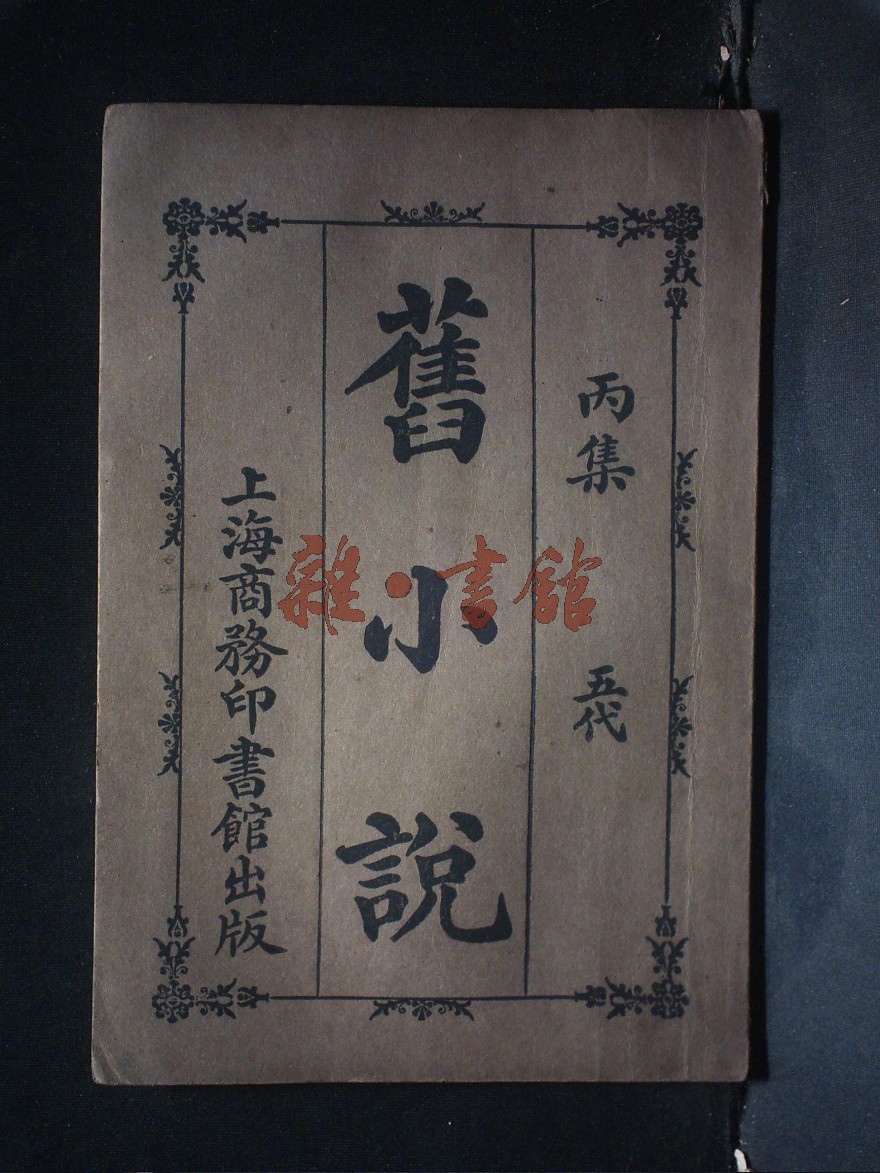 丙集 五代
舊小說
上海商務印書館出版
雜·書館